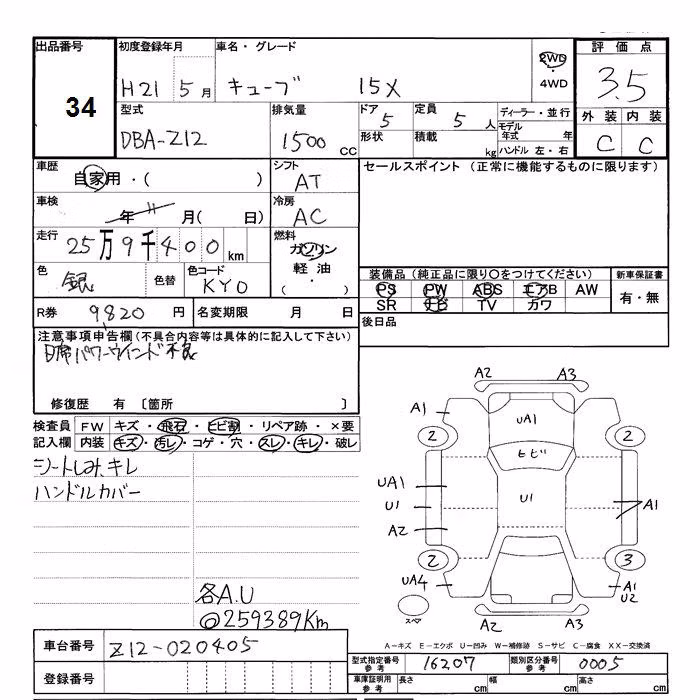 出品番号 初度登録年月 車名・グレード 評価点
34 H21 5月 キューブ 15X 2WD・4WD 3.5
型式 排気量 ドア 定員 ディーラー・並行 外装 内装
DBA-Z12 1500 CC 5 5人 モデル年式 年 C C
形状 積載 kg ハンドル 左・右
車歴 シフト セールスポイント (正常に機能するものに限ります)
自家用・( ) AT
車検 冷房
年 11 月( 日) AC
走行 燃料
25万9千400km ガソリン
軽油
・( )
色 色替 色コード 装備品 (純正品に限り○をつけてください) 新車保証書
銀 KY0 PS PW ABS エアB AW 有・無
SR ナビ TV カワ
R券 9820円 名変期限 月 日 後日品
注意事項申告欄(不具合内容等は具体的に記入して下さい)
D席パワーウインド不良
修復歴 有 〔箇所 〕
検査員 FW キズ・飛石・ヒビ割・リペア跡・×要
記入欄 内装 キズ・汚レ・コゲ・穴・スレ・キレ・破レ
シートしみ、キレ
ハンドルカバー
各A.U
@259389Km
A2 A3
A1 UA1
2 2
ヒビ
UA1
U1 U1 A1
A2
2 3
UA4 A1
U2
スペア A2 A3
A－キズ E－エクボ U－凹み W－補修跡 S－サビ C－腐食 XX－交換済
車台番号 Z12-020405
型式指定番号 参考 16207 類別区分番号 参考 0005
登録番号 車庫証明用 参考 長さ cm 幅 cm 高さ cm